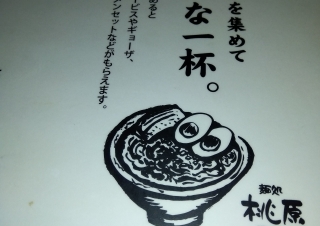 を集めて
な一杯。
めると
ービスやギョーザ、
ンセットなどがもらえます。
麺処
桃原